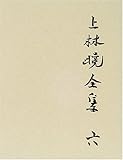 上林暁全集 六